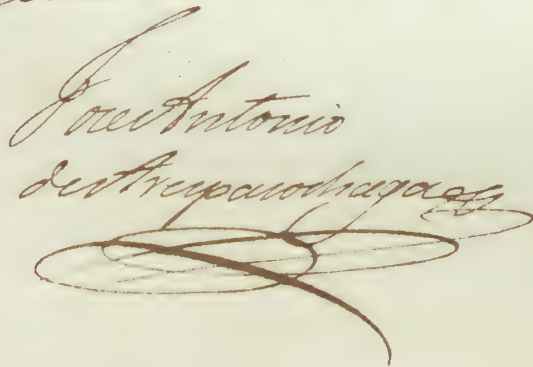 Jose Antonio
de Areypacochaga